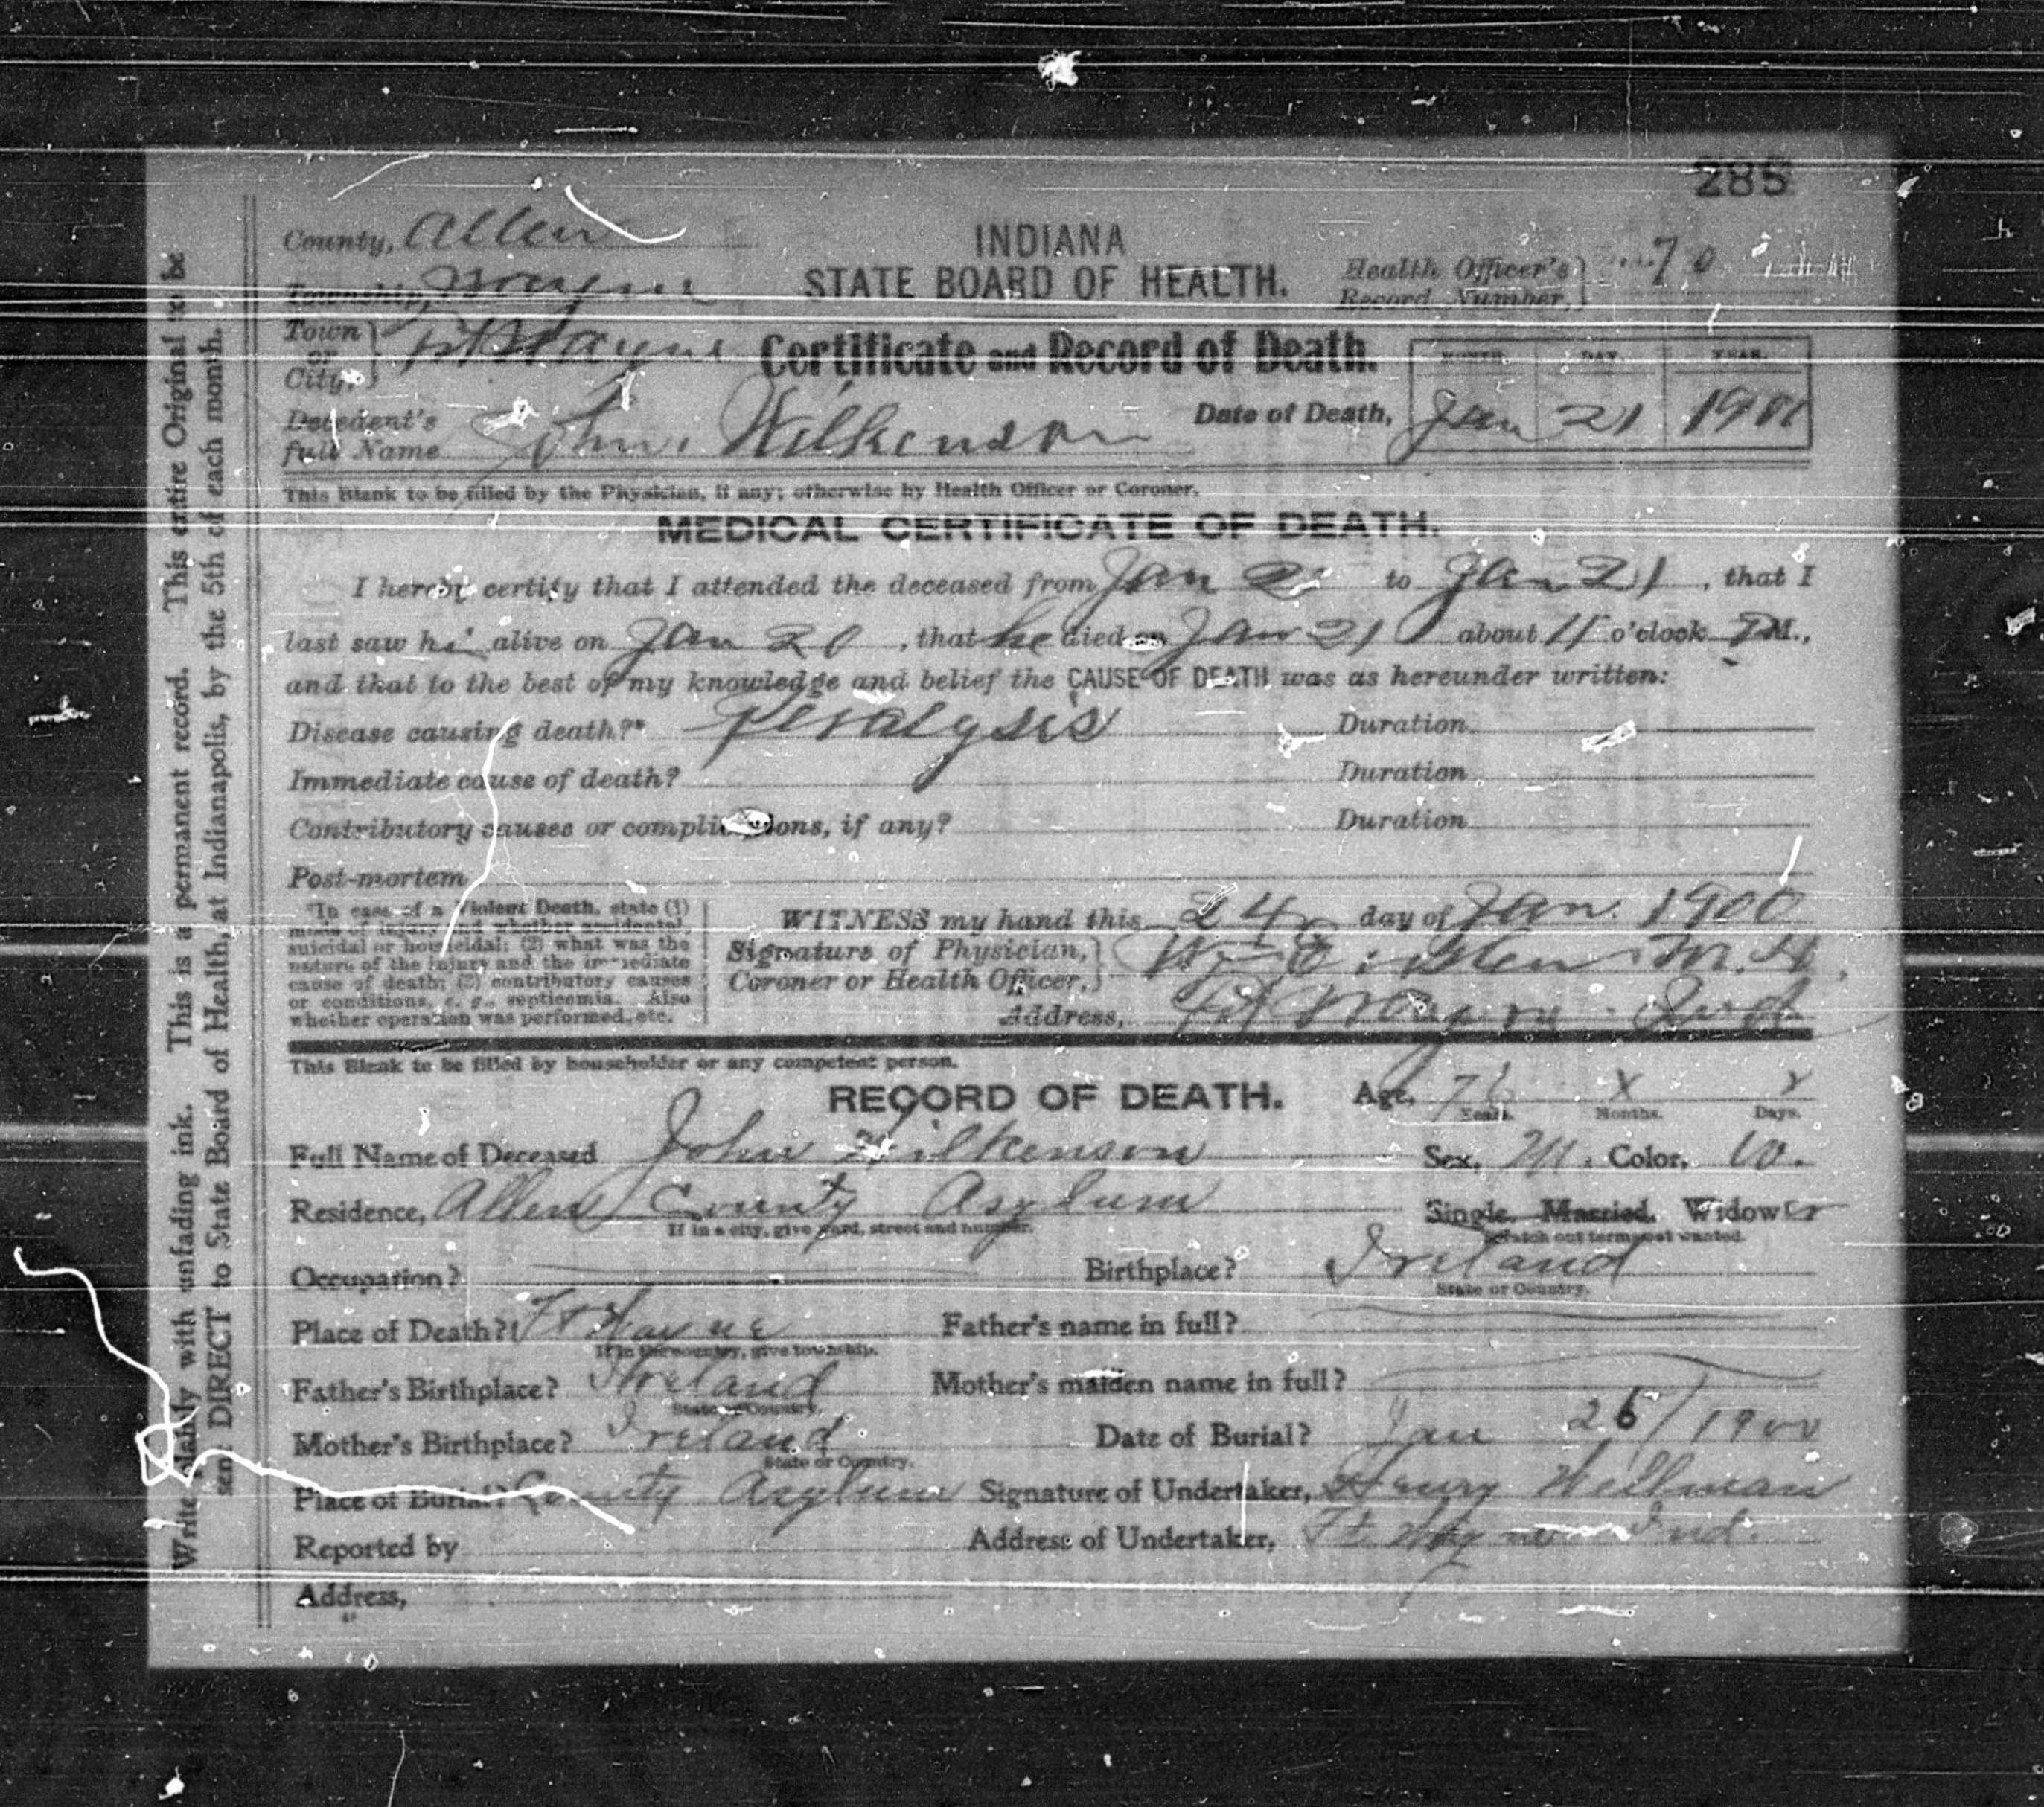 285
County, Allen
INDIANA
STATE BOARD OF HEALTH.
Health Officer's Record Number, 70
Township, Wayne
Town or City, Ft Wayne
Certificate and Record of Death.
MONTH. DAY. YEAR.
Decedent's full Name John Wilkenson
Date of Death, Jan 21 1900
This Blank to be filled by the Physician, if any; otherwise by Health Officer or Coroner.
MEDICAL CERTIFICATE OF DEATH.
I hereby certify that I attended the deceased from Jan to Jan 21, that I
last saw hi alive on Jan 20, that he died on Jan 21 about 11 o'clock P M.,
and that to the best of my knowledge and belief the CAUSE OF DEATH was as hereunder written:
Disease causing death?* Peralysis Duration
Immediate cause of death? Duration
Contributory causes or complications, if any? Duration
Post-mortem
*In case of a Violent Death, state (1)
means of injury and whether accidental,
suicidal or homicidal; (2) what was the
nature of the injury and the immediate
cause of death; (3) contributory causes
or conditions, e. g., septicemia. Also
whether operation was performed, etc.
WITNESS my hand this 24 day of Jan. 1900
Signature of Physician, Coroner or Health Officer,
Address, Ft Wayne Ind
This Blank to be filled by householder or any competent person.
RECORD OF DEATH. Age, 76 X
Years. Months. Days.
Full Name of Deceased John Wilkenson Sex, M. Color, W.
Residence, Allen County Asylum Single. Married. Widower
If in a city, give ward, street and number. Scratch out terms not wanted.
Occupation? Birthplace? Ireland
State or Country.
Place of Death? Ft Wayne Father's name in full?
If in the country, give township.
Father's Birthplace? Ireland Mother's maiden name in full?
State or Country.
Mother's Birthplace? Ireland Date of Burial? Jan 25/1900
State or Country.
Place of Burial? County Asylum Signature of Undertaker, Henry Wellman
Reported by Address of Undertaker, Ft. Wayne Ind.
Address,
Write plainly with unfading ink. This is a permanent record. This entire Original to be
sent DIRECT to State Board of Health, at Indianapolis, by the 5th of each month.